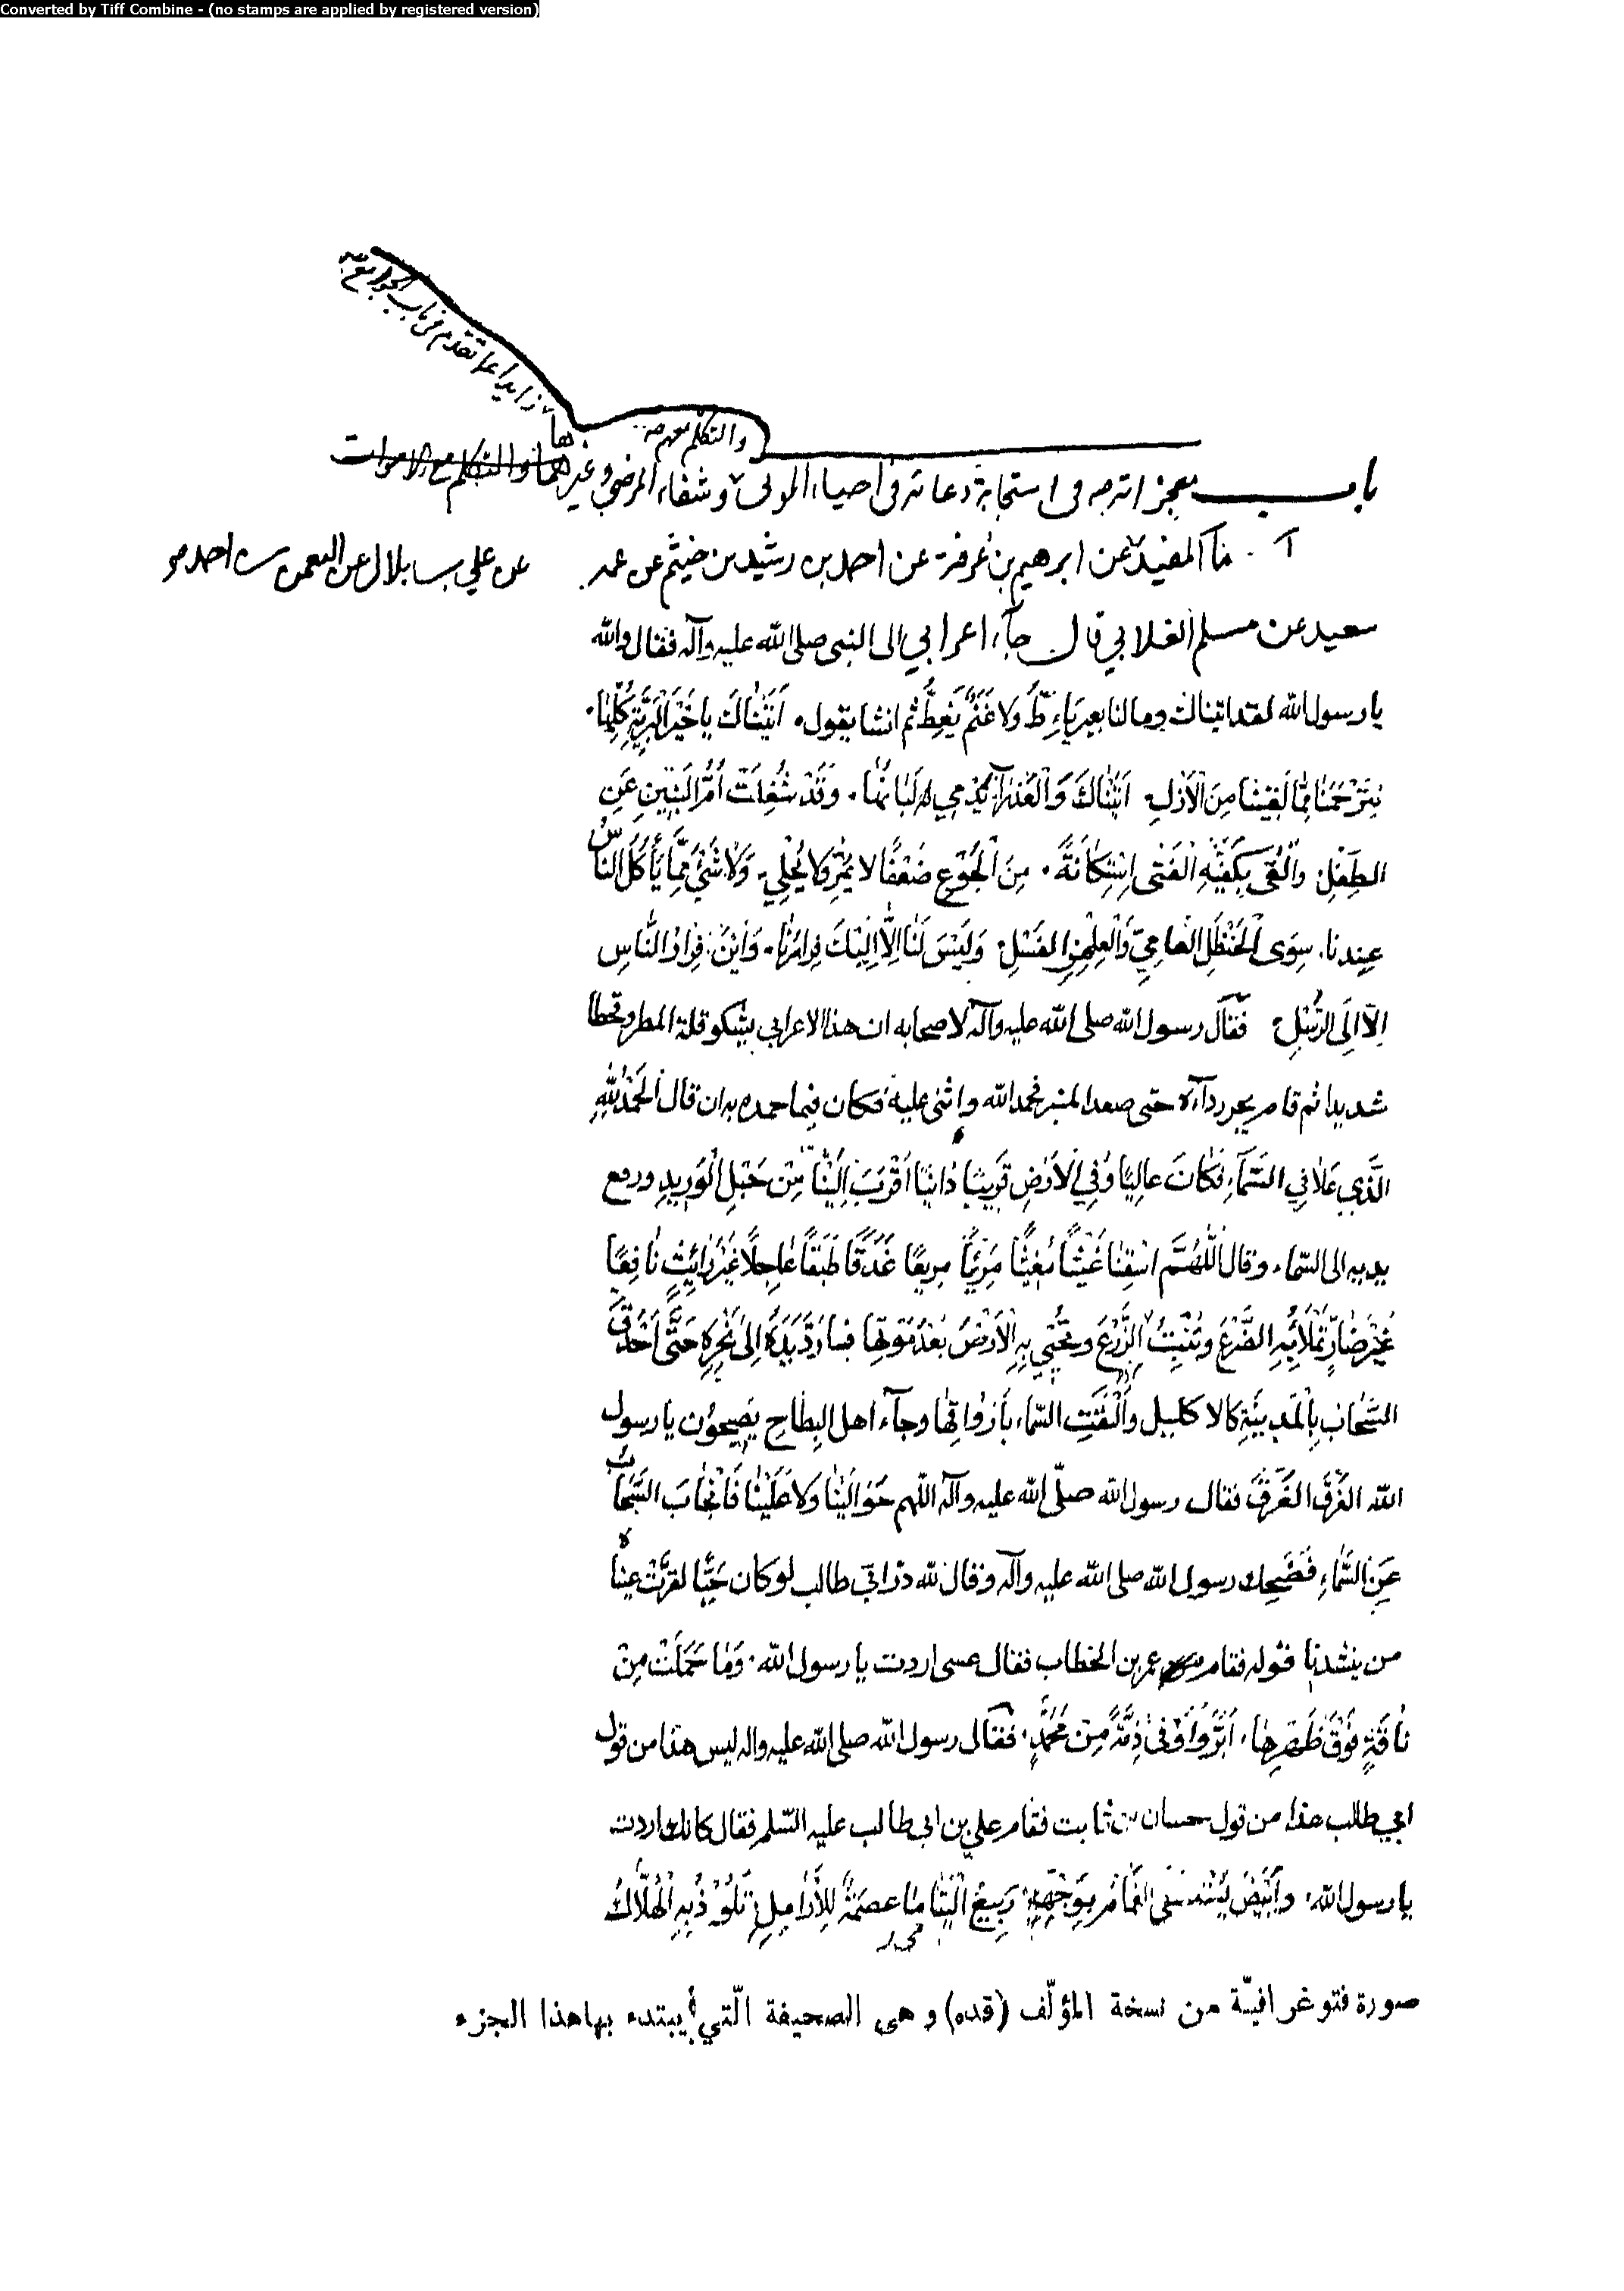 Converted by Tiff Combine - (no stamps are applied by registered version)
زايدا عما تقدم في باب الجوامع
والتكلم معهم
باب معجزاته في استجابة دعائه في احياء الموتى وشفاء المرضى وغيرها
والتكلم مع الاموات
المفيد عن ابرهيم بن عرفة عن احمد بن رشيد بن خيثم عن عمه
سعيد عن مسلم الغلابي قال جآء اعرابي الى النبي صلى الله عليه وآله فقال والله
يا رسول الله لقد اتيناك وما لنا بعير يَاِطُّ ولا غَنَمٌ يَغِطُّ ثم انشا يقول اَتَيْنَاكَ يا خَيْرَ الْبَرِيَّةِ كُلِّهَا
لِتَرْحَمَنَا مِمَّا لَقِينَا مِنَ الْاَزْلِ اَتَيْنَاكَ وَالْعَذْرَآءُ يَدْمِي لَبَانُهَا وَقَدْ شُغِلَتْ اُمُّ الْبَنِينَ عَنِ
الطِّفْلِ وَاَلْقَى بِكَفَّيْهِ الْفَتَى اِسْتِكَانَةً مِنَ الْجُوْعِ ضَعْفًا لا يُمِرُّ ولا يُحْلِي وَلَا شَيْءَ مِمَّا يَأْكُلُ النَّاسُ
عِنْدنا سِوَى الْحَنْظَلِ العَامِيِّ وَالْعِلْهِزِ الفَسْلِ وَلَيْسَ لَنَا اِلَّا اِلَيْكَ فِرَارُنَا وَاَيْنَ فِرَارُ النَّاسِ
اِلَّا اِلَى الرُّسُلِ فقال رسول الله صلى الله عليه وآله لاصحابه ان هذا الاعرابي يشكو قلة المطر وقحطا
شديدا ثم قام يجر ردآءه حتى صعد المنبر فحمد الله واثنى عليه فكان فيما حمده به ان قال الْحَمْدُ لِلّٰهِ
الَّذِي عَلَا فِي السَّمَآءِ فَكَانَ عَالِيًا وَفِي الْاَرْضِ قَرِيبًا دَانِيًا اَقْرَبَ اِلَيْنَا مِنْ حَبْلِ الْوَرِيدِ ورفع
يديه الى السماء وقال اَللّٰهُمَّ اسْقِنَا غَيْثًا مُغِيثًا مَرِيئًا مَرِيعًا غَدَقًا طَبَقًا عَاجِلًا غَيْرَ رَائِثٍ نَافِعًا
غَيْرَ ضَارٍّ تَمْلَأُ بِهِ الضَّرْعَ وتُنْبِتُ بِهِ الزَّرْعَ وتُحْيِي بِهِ الْاَرْضَ بَعْدَ مَوْتِهَا فما رَدَّ يَدَهُ اِلَى نَحْرِهِ حَتَّى اَحْدَقَ
السَّحَابُ بِالْمَدِينَةِ كالاكليل وَاَلْقَتِ السماء بِاَرْوَاقِهَا وجآء اهل البِطَاحِ يَصِيحُون يا رسول
الله الغَرَقَ الغَرَقَ فقال رسول الله صلّى الله عليه وآله اللهم حَوَالَيْنَا وَلا عَلَيْنَا فَانْجَابَ السَّحَابُ
عَنِ السَّمَاءِ فَضَحِكَ رسول الله صلى الله عليه وآله وقال لله دَرُّ ابي طالب لو كان حَيًّا لقرَّتْ عيناه
من ينشدنا قوله فقام عمر بن الخطاب فقال عسى اردت يا رسول الله وَمَا حَمَلَتْ مِنْ
نَاقَةٍ فَوْقَ ظَهْرِهَا اَبَرَّ وَاَوْفَى ذِمَّةً مِنْ مُحَمَّدٍ فقال رسول الله صلى الله عليه واله ليس هذا من قول
ابي طالب هذا من قول حسان بن ثابت فقام علي بن ابي طالب عليه السّلم فقال كانك اردت
يا رسول الله وَاَبْيَضُ يُسْتَسْقَى الْغَمَامُ بِوَجْهِهِ رَبِيعُ الْيَتَامَا عصمَةٌ لِلْاَرَامِلِ تَلُوذُ بِهِ الْهُلَّاكُ
صورة فتوغرافيّة من نسخة المؤلّف (قده) وهي الصحيفة الّتي يبتدء بها هذا الجزء